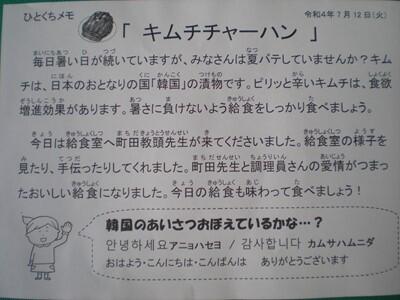 ひとくちメモ
令和4年7月12日(火)
「 キムチチャーハン 」
毎日暑い日が続いていますが、みなさんは夏バテしていませんか?キム
チは、日本のおとなりの国「韓国」の漬物です。ピリッと辛いキムチは、食欲
増進効果があります。暑さに負けないよう給食をしっかり食べましょう。
今日は給食室へ町田教頭先生が来てくださいました。給食室の様子を
見たり、手伝ったりしてくれました。町田先生と調理員さんの愛情がつまっ
たおいしい給食になりました。今日の給食も味わって食べましょう!
韓国のあいさつおぼえているかな…?
안녕하세요アニョハセヨ / 감사합니다 カムサハムニダ
おはよう・こんにちは・こんばんは ありがとうございます